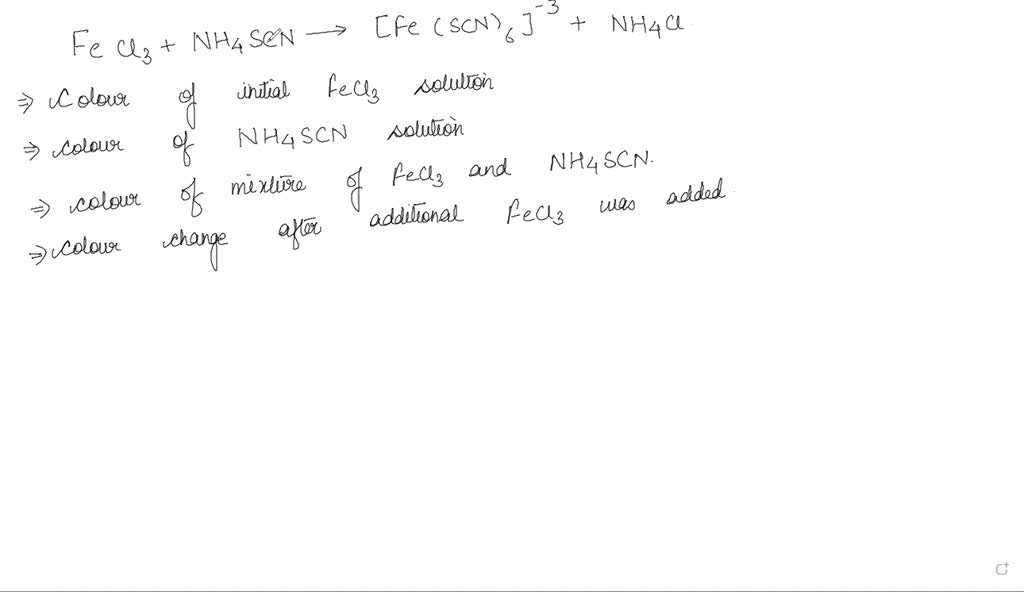 FeCl₃ + NH₄SCN → [Fe(SCN)₆]⁻³ + NH₄Cl
⇒ Colour of initial FeCl₃ solution
⇒ colour of NH₄SCN solution
⇒ colour of mixture of FeCl₃ and NH₄SCN.
⇒ Colour change after additional FeCl₃ was added.